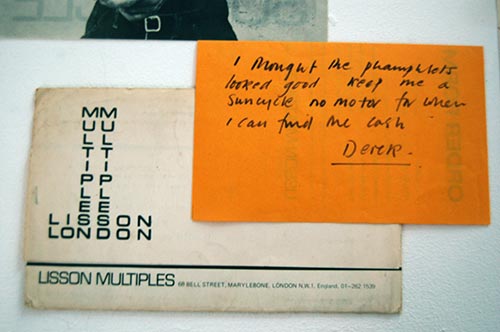 I thought the phamphlets
looked good keep me a
suncycle no motor for when
I can find the cash
Derek.
MULTIPLES
MULTIPLES
LISSON
LONDON
LISSON MULTIPLES 68 BELL STREET, MARYLEBONE, LONDON N.W.1, England, 01-262 1539